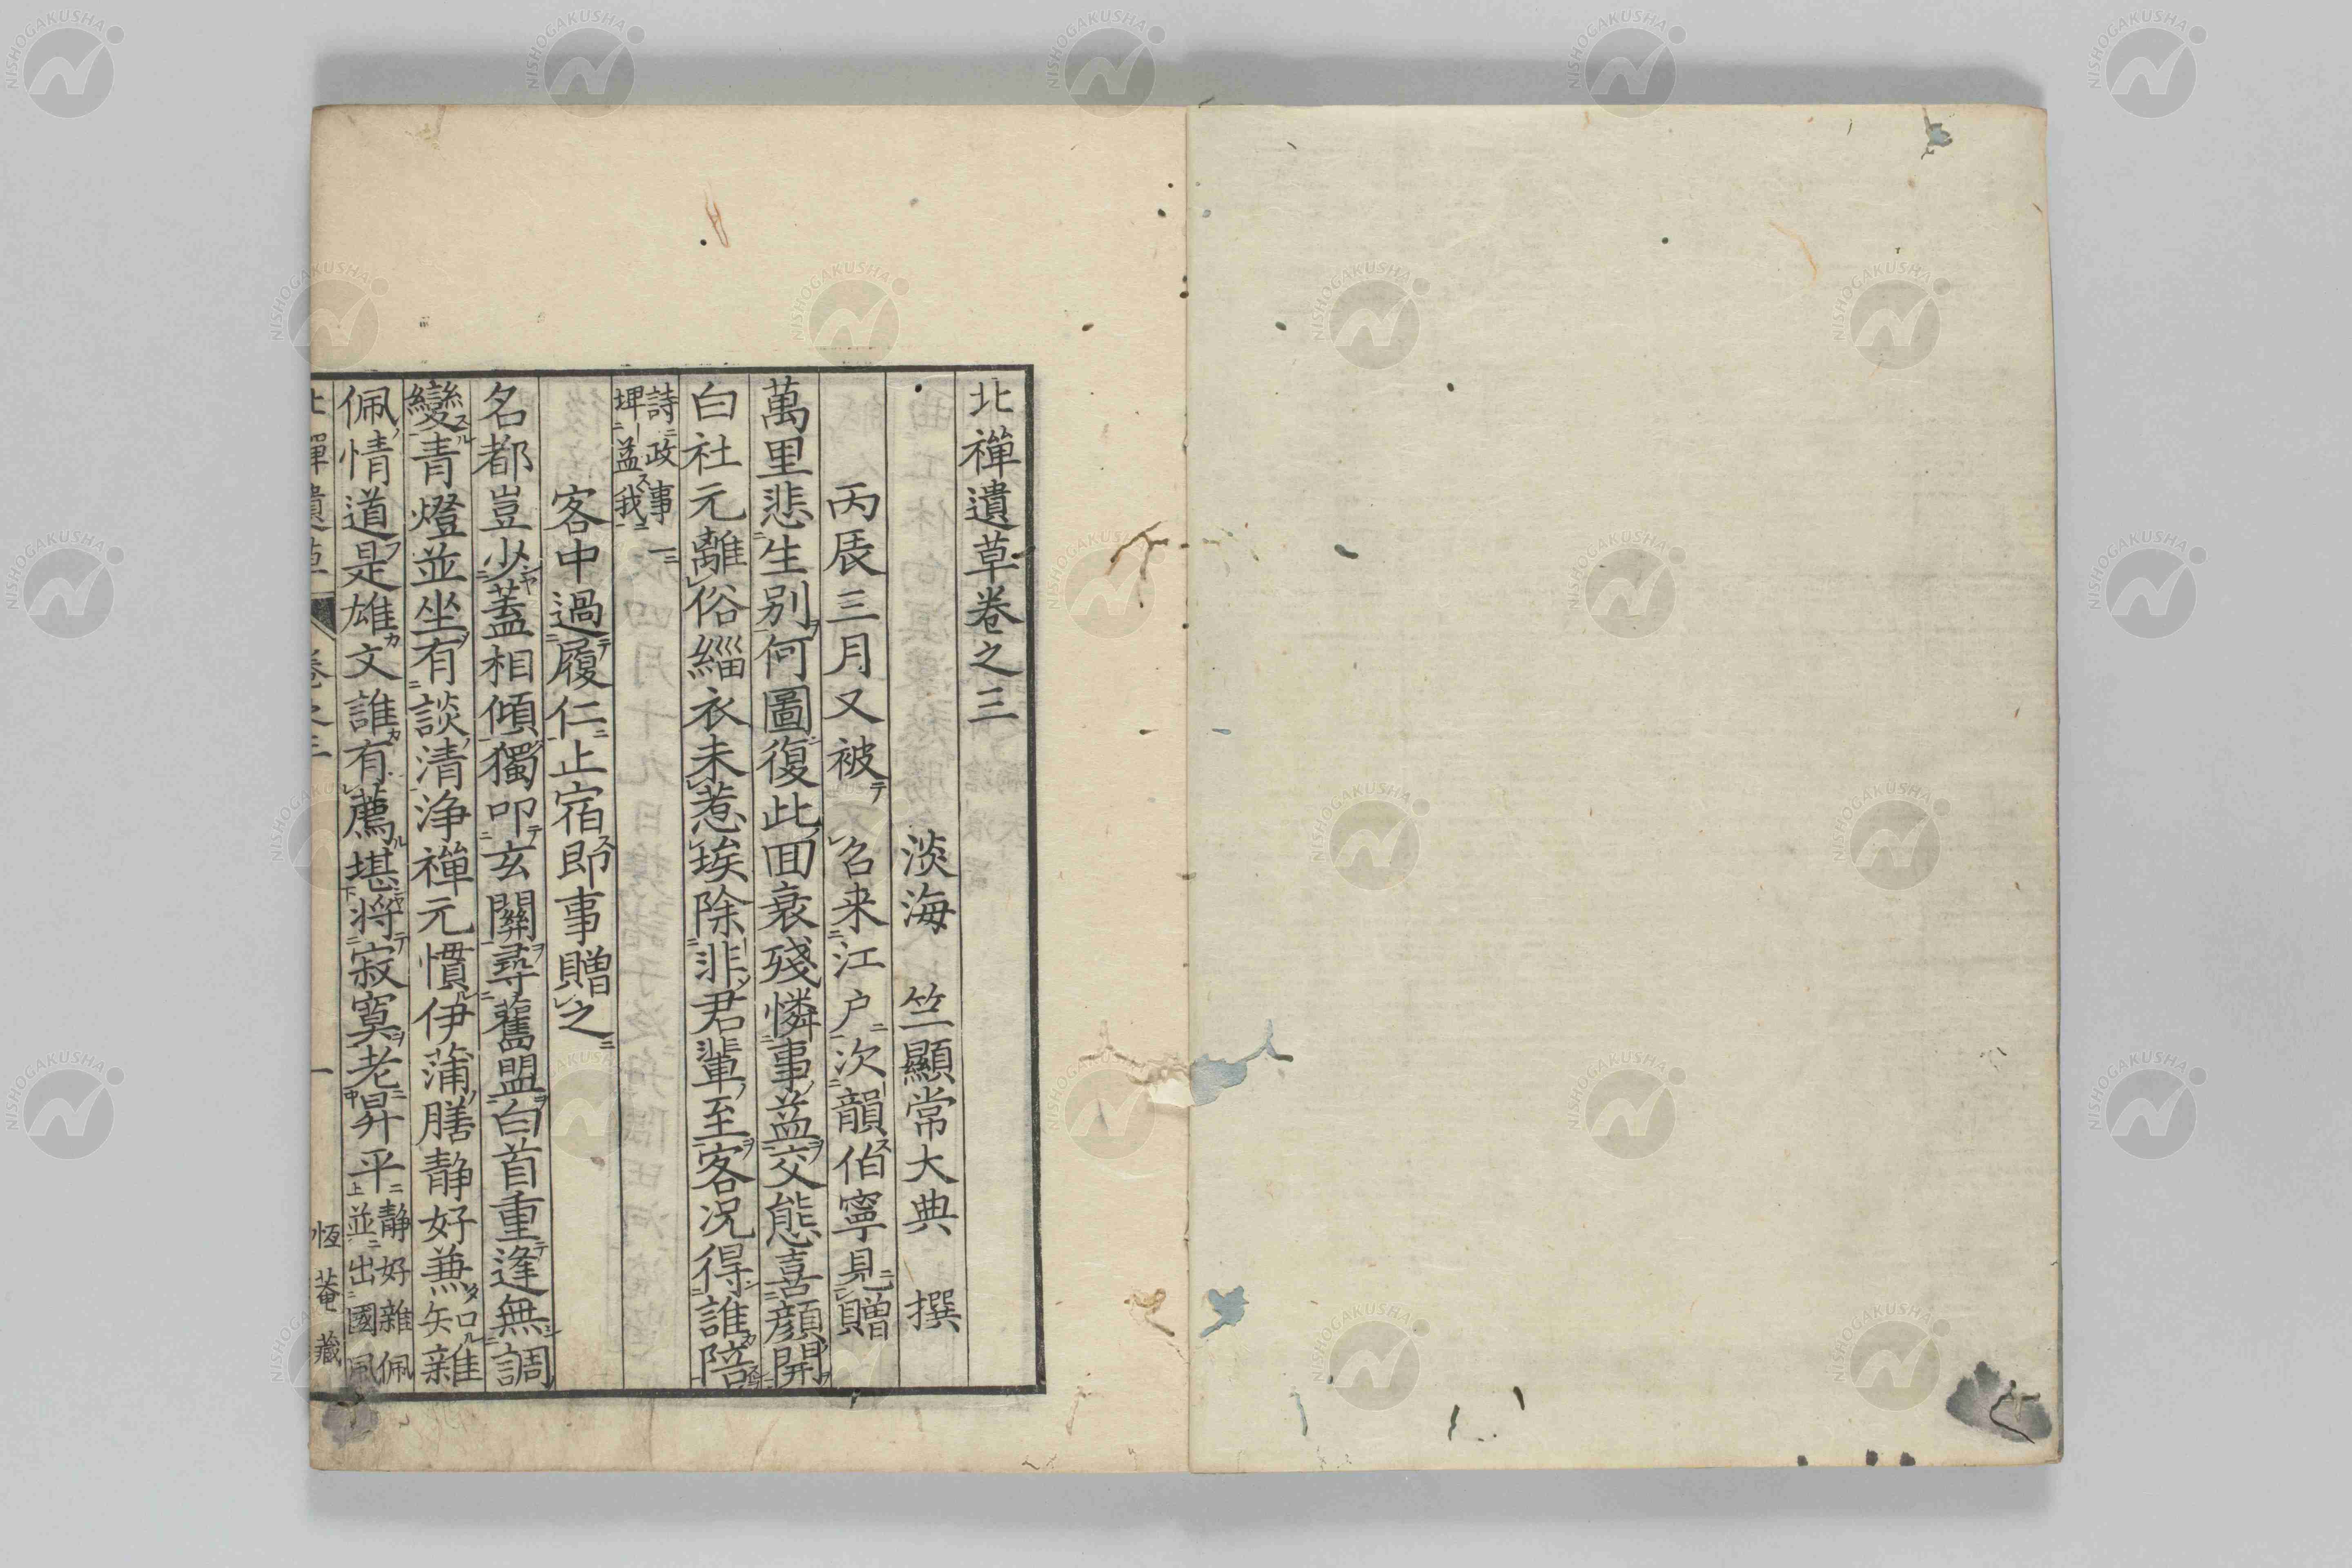 北禪遺草卷之三
淡海 竺顯常大典 撰
丙辰三月又被 召来江户次韻伯寧見贈
萬里悲生别何圖復此回衰殘憐事益交態喜顔開
白社元離俗緇衣未惹埃除非君輩至客况得誰陪
詩政事一
埤益我
客中過履仁止宿即事贈之
名都豈少蓋相傾獨叩玄關尋舊盟白首重逢無調
變青燈並坐有談清浄禪元慣伊蒲膳静好兼知雜
佩情道是雄文誰有薦堪將寂寞老昇平静好雜佩
並出國風
北禪遺草 卷之三 一 恆菴藏
NISHOGAKUSHA